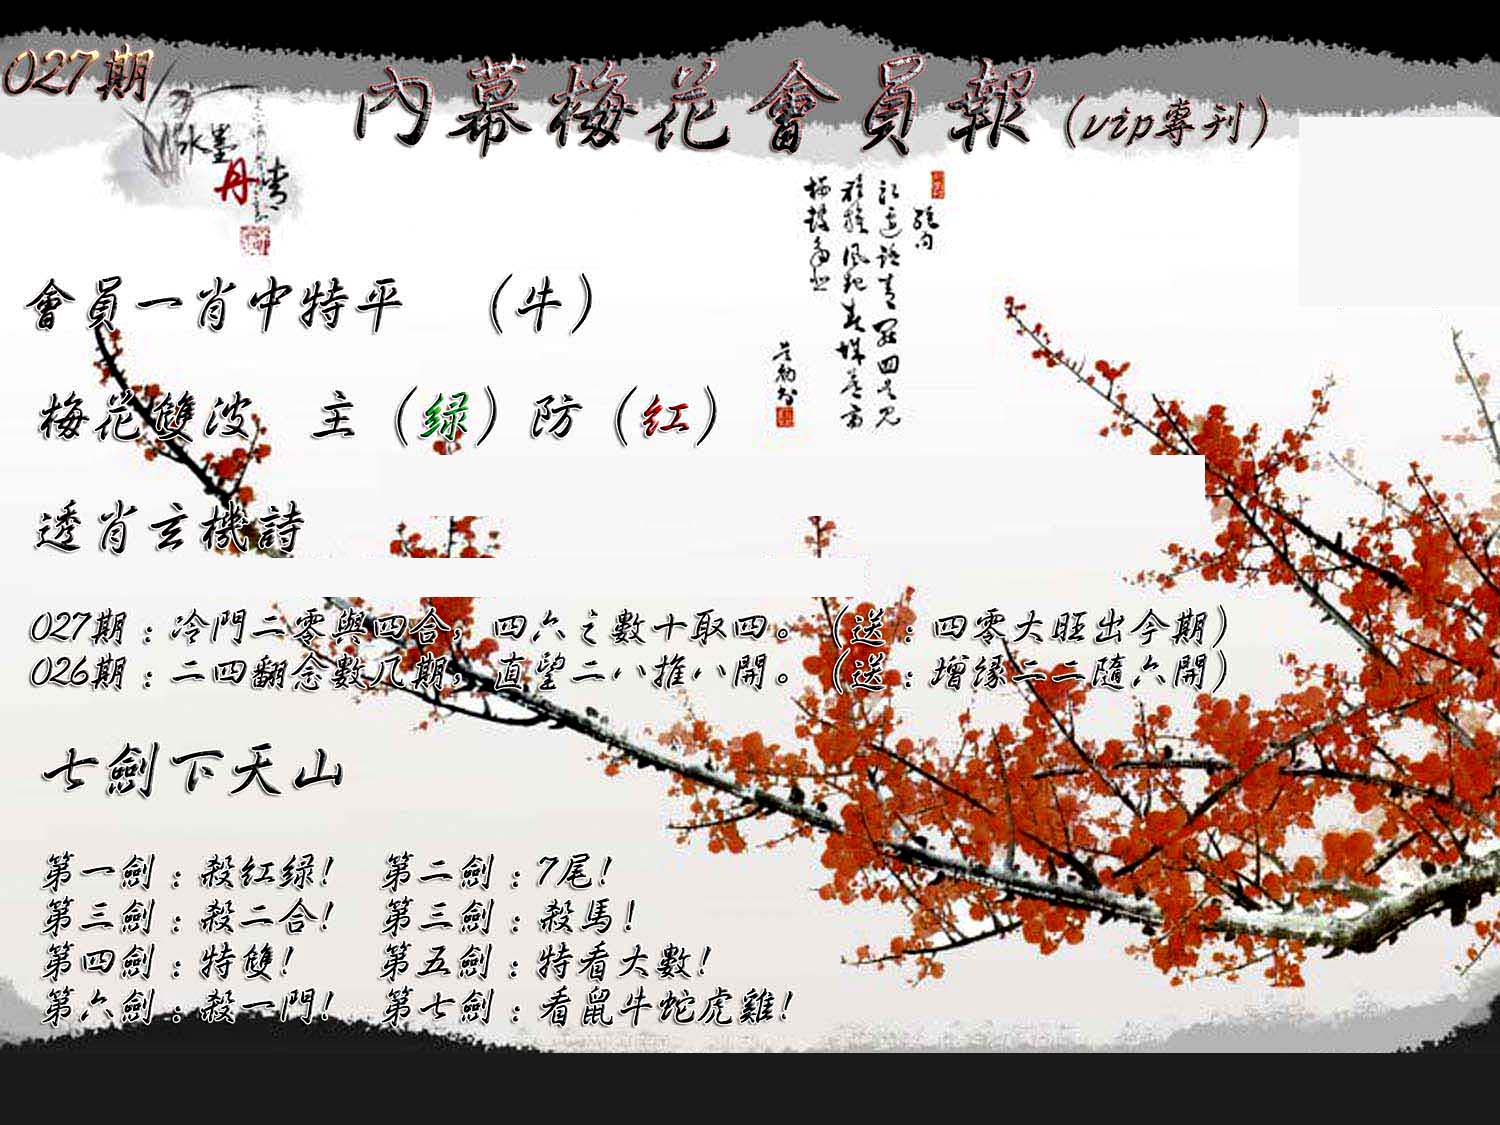 027期
內幕梅花會員報(vip專刊)
水墨
丹青
會員一肖中特平 (牛)
梅花雙波 主(绿)防(红)
透肖玄機詩
027期:冷門二零與四合,四六之數十取四。(送:四零大旺出今期)
026期:二四翻念數几期,直望二八推八開。(送:增缘二二隨六開)
七劍下天山
第一劍:殺红绿! 第二劍:7尾!
第三劍:殺二合! 第三劍:殺馬!
第四劍:特雙! 第五劍:特看大數!
第六劍:殺一門! 第七劍:看鼠牛蛇虎雞!